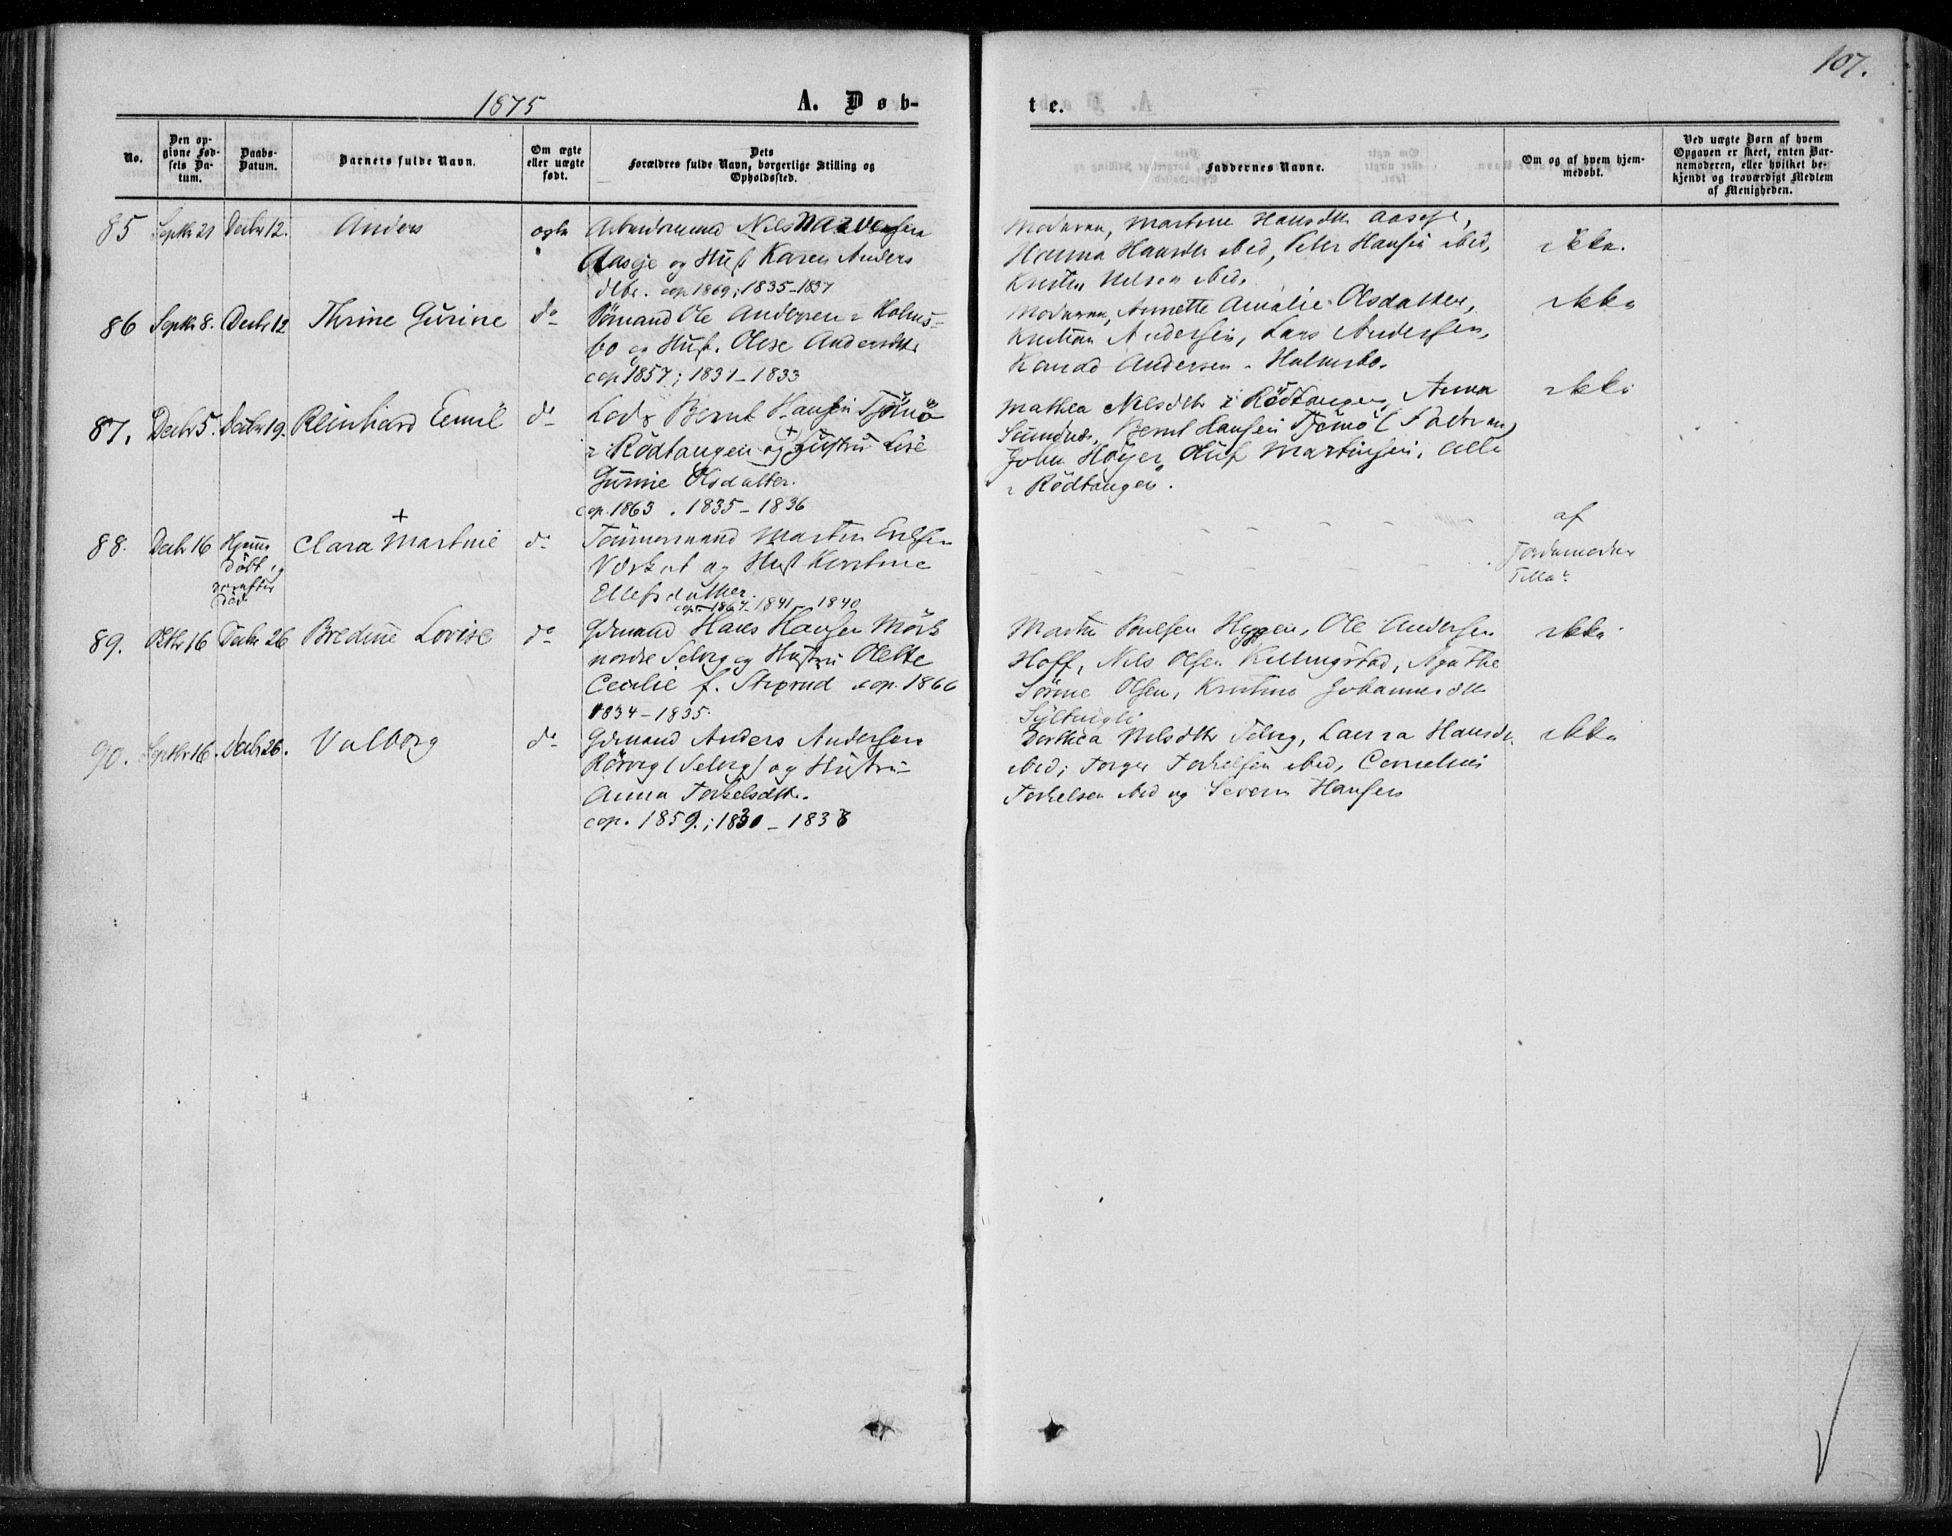 107.
1875 A. Døb- te.
No.
Den opgivne Fødsels Datum.
Daabs-Datum.
Barnets fulde Navn.
Om ægte eller uægte født.
Dets Forældres fulde Navn, borgerlige Stilling og Opholdssted.
Faddernes Navne.
Om og af hvem hjemmedøbt.
Ved uægte Børn af hvem Opgaven er skeet, enten Barnemoderen, eller hvilket bekjendt og troværdigt Medlem af Menigheden.
85 Septbr 21 Decbr 12. Anders ægte
Arbeidsmand Nils
Aasge og Hust Karen Anders
dtbr. cop 1869; 1835-1837
Moderen, Martine Hansdtr Aasge,
Hansdtr ibid, Peter Hansen ibid,
Nilsen ibid.
ikke.
86 Septbr 8. Decbr 12 Thrine Gurine do
Ole Andersen i Holms-
bo og Hust. Olise Andersdtr
cop 1857; 1831-1833
Moderen, Annette Amalie Olsdatter,
Kristian Andersen, Lars Andersen,
Konrad Andersen - Holmsbo.
ikke
87. Decbr 5. Decbr 19. Reinhard Eemil do
Lods Bernt Hansen Tjømø
i Rødtangen og Hustru Lise
Gurine Olsdatter.
cop. 1863. 1835-1836
Mathea Nilsdtr i Rødtangen, Anna
Sundnes, Bernt Hansen Tjømø (Faderen)
John Høyer, Oluf Martinsen, alle
i Rødtangen.
ikke
88. Decbr 16 Hjemmedøbt, derefter død
+
Clara Martine do
Tømmermand Martin
og Hust Kirstine
Ellefsdatter.
cop. 1867. 1841-1840
af
Jordemoder
89. Octbr 16 Decbr 26 Bredine Lovise do
Gdmand Hans Hansen Mørk
nordre Selvig og Hustru Olette
Cecilie f. Stixrud cop. 1866
1834-1835.
Martin Poulsen Hyggen, Ole Andersen
Hoff, Nils Olsen Killingstad, Agathe
Sørine Olsen, Kristine Johannesdtr
ikke
90. Septbr 16. Decbr 26. Valborg do
Gdmand Anders Andersen
Rørvig (Selvig) og Hustru
Anna Torkelsdtr.
cop. 1859.; 1830-1838
Dorthea Nilsdtr Selvig, Laura Hansdtr
ibid; Torger Torkelsen ibid, Cornelius
Torkelsen ibid og Severin Hansen
ikke